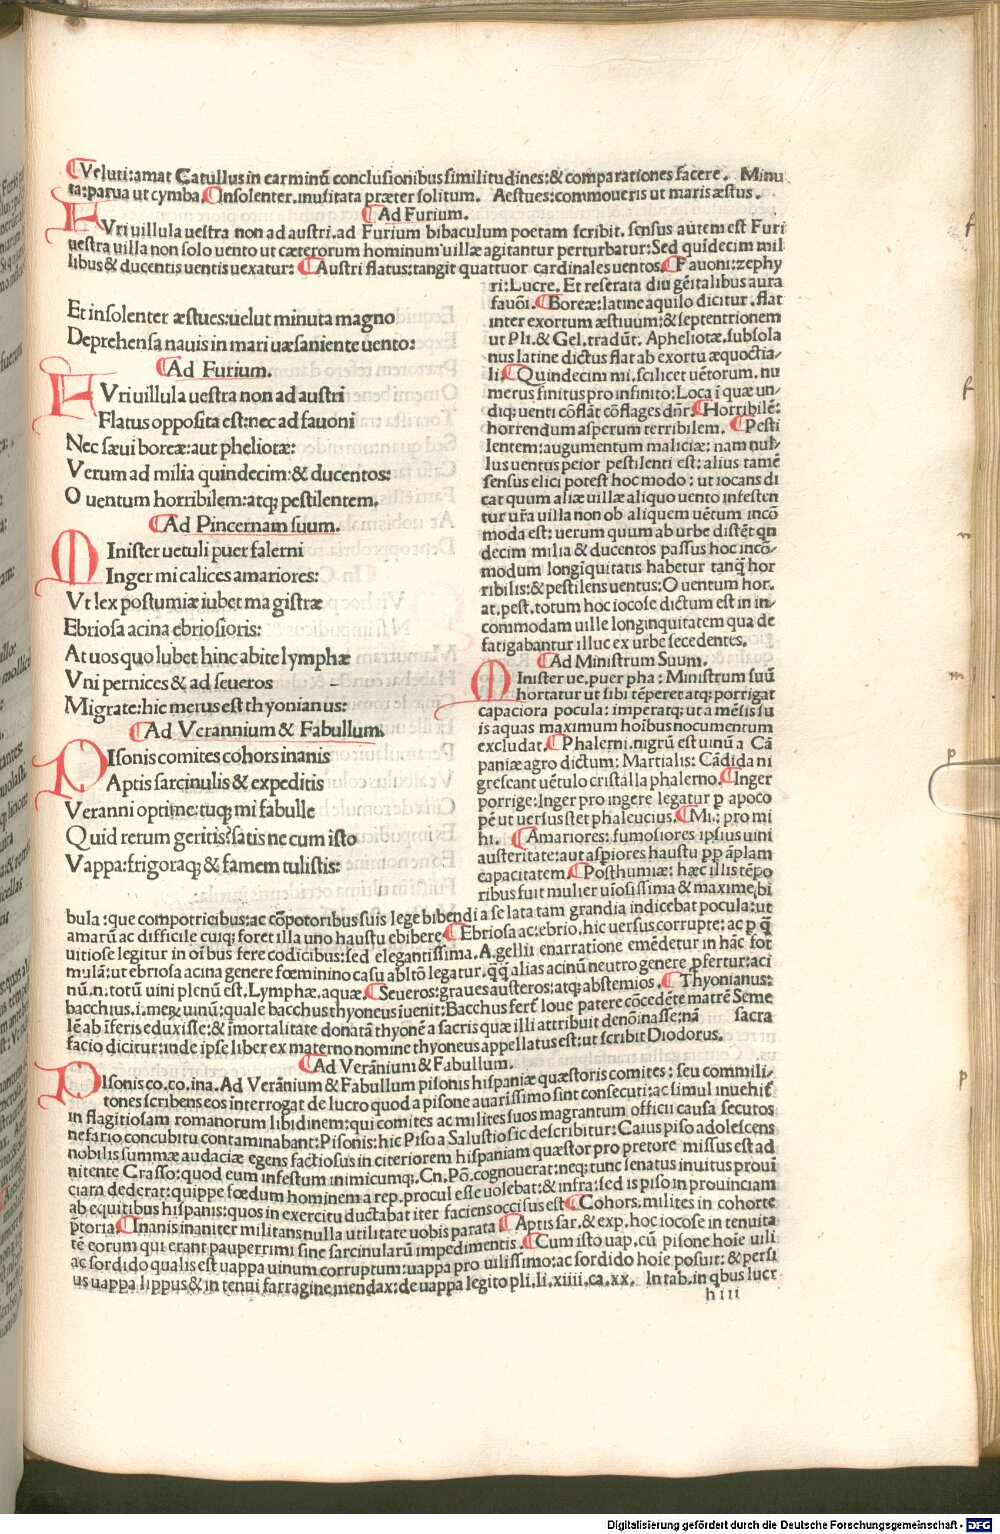 Veluti:amat Catullus in carminũ conclusionibus similitudines:& comparationes facere. Minu
ta:parua ut cymba. Insolenter.inusitata præter solitum. Aestues:commoueris ut maris æstus.
Ad Furium.
FVri uillula uestra non ad austri.ad Furium bibaculum poetam scribit. sensus autem est Furi
uestra uilla non solo uento ut cæterorum hominum uillæ agitantur perturbatur: Sed quidecim mil
libus & ducentis uentis uexatur: Austri flatus:tangit quattuor cardinales uentos. Fauoni:zephy
ri:Lucre. Et reserata diu gẽitalibus aura
fauõi. Boreæ:latine aquilo dicitur.flat
inter exortum æstiuum:& septentrionem
ut Pli.& Gel.tradũt. Apheliotæ.subsola
nus latine dictus flat ab exortu æquoctia-
li. Quindecim mi.scilicet uẽtorum.nu
merus finitus pro infinito: Loca ĩ quæ un-
diq; uenti cõflãt cõflages dñr. Horribilẽ:
horrendum asperum terribilem. Pesti
lentem:augumentum maliciæ: nam nul-
lus uentus peior pestilenti est: alius tamẽ
sensus elici potest hoc modo: ut iocans di
cat quum aliæ uillæ aliquo uento infesten
tur ura uilla non ob aliquem uẽtum incõ
moda est: uerum quum ab urbe distẽt qn
decim milia & ducentos passus hoc incõ-
modum longĩquitatis habetur tanq̃ hor
ribilis:& pestilens uentus: O uentum hor.
at.pest.totum hoc iocose dictum est in in-
commodam uille longinquitatem qua de
fatigabantur illuc ex urbe secedentes.
Ad Ministrum Suum.
MInister ue.puer pha: Ministrum suũ
hortatur ut sibi tẽperet atq; porrigat
capaciora pocula: imperatq; ut a mẽsis su
is aquas maximum hoĩbus nocumentum
excludat. Phalerni.nigrũ est uinũ a Cã
paniæ agro dictum: Martialis: Cãdida ni
grescant uẽtulo cristalla phalerno. Inger
porrige:Inger pro ingere legatur p apoco
pẽ ut uersus stet phaleucius. Mi: pro mi
hi. Amariores: fumosiores ipsius uini
austeritate:aut aspiores haustu pp ãplam
capacitatem. Posthumiæ: hæc illis tẽpo
ribus fuit mulier uĩosissima & maxime bi
Et insolenter æstues:uelut minuta magno
Deprehensa nauis in mari uæsaniente uento:
Ad Furium.
FVri uillula uestra non ad austri
Flatus opposita est:nec ad fauoni
Nec sæui boreæ:aut pheliotæ:
Verum ad milia quindecim:& ducentos:
O uentum horribilem:atq; pestilentem.
Ad Pincernam suum.
MInister uetuli puer falerni
Inger mi calices amariores:
Vt lex postumiæ iubet magistræ
Ebriosa acina ebriosioris:
At uos quo lubet hinc abite lymphæ
Vni pernices & ad seueros
Migrate:hic merus est thyonianus:
Ad Verannium & Fabullum.
PIsonis comites cohors inanis
Aptis sarcinulis & expeditis
Veranni optime:tuq; mi fabulle
Quid rerum geritis?satis ne cum isto
Vappa:frigoraq; & famem tulistis:
bula:que compotricibus:ac cõpotoribus suis lege bibendi a se lata tam grandia indicebat pocula:ut
amarũ ac difficile cuiq; foret illa uno haustu ebibere. Ebriosa ac:ebrio.hic uersus corrupte: ac p q̃
uitiose legitur in oĩbus fere codicibus:sed elegantissima.A.gellii enarratione emẽdetur in hãc for
mulã:ut ebriosa acina genere fœminino casu abltõ legatur.q̃q̃ alias acinũ neutro genere pfertur:aci
nũ.n.totũ uini plenũ est. Lymphæ.aquæ. Seueros:graues austeros:atq; abstemios. Thyonianus:
bacchius.i.meæ uinũ:quale bacchus thyoneus iuenit:Bacchus fert Ioue patere cõcedẽte matrẽ Seme
lẽ ab ĩferis eduxisse:& ĩmortalitate donatã thyonẽ a sacris quæ illi attribuit denõinasse:nã sacra
facio dicitur:inde ipse liber ex materno nomine thyoneus appellatus est:ut scribit Diodorus.
Ad Verãnium & Fabullum.
PIsonis co.co.ina. Ad Verãnium & Fabullum pisonis hispaniæ quæstoris comites: seu commili-
tones scribens eos interrogat de lucro quod a pisone auarissimo sint consecuti:ac simul inuehit
in flagitiosam romanorum libidinem:qui comites ac milites suos magrantum officii causa secutos
nefario concubitu contaminabant:Pisonis:hic Piso a Salustio sic describitur: Caius piso adolescens
nobilis summæ audaciæ egens factiosus in citeriorem hispaniam quæstor pro pretore missus est ad
nitente Crasso:quod eum infestum inimicumq; Cn.Põ.cognouerat:neq; tunc senatus inuitus prouĩ
ciam dederat:quippe fœdum hominem a rep.procul esse uolebat:& infra:sed is piso in prouinciam
ab equitibus hispanis:quos in exercitu ductabat iter faciens occisus est Cohors.milites in cohorte
ptoria. Inanis inaniter militans nulla utilitate uobis parata Aptis sar.& exp.hoc iocose in tenuita
tẽ eorum qui erant pauperrimi sine sarcinularũ impedimentis. Cum isto uap.cũ pisone hoĩe uili
ac sordido qualis est uappa uinum corruptum:uappa pro uilissimo:ac sordido hoĩe posuit:& persi
us uappa lippus & in tenui farragine mendax:de uappa legito pli.li.xiiii.ca.xx. In tab.in qbus lucr
h iii
f
f
n
m
p
p
Digitalisierung gefördert durch die Deutsche Forschungsgemeinschaft - DFG